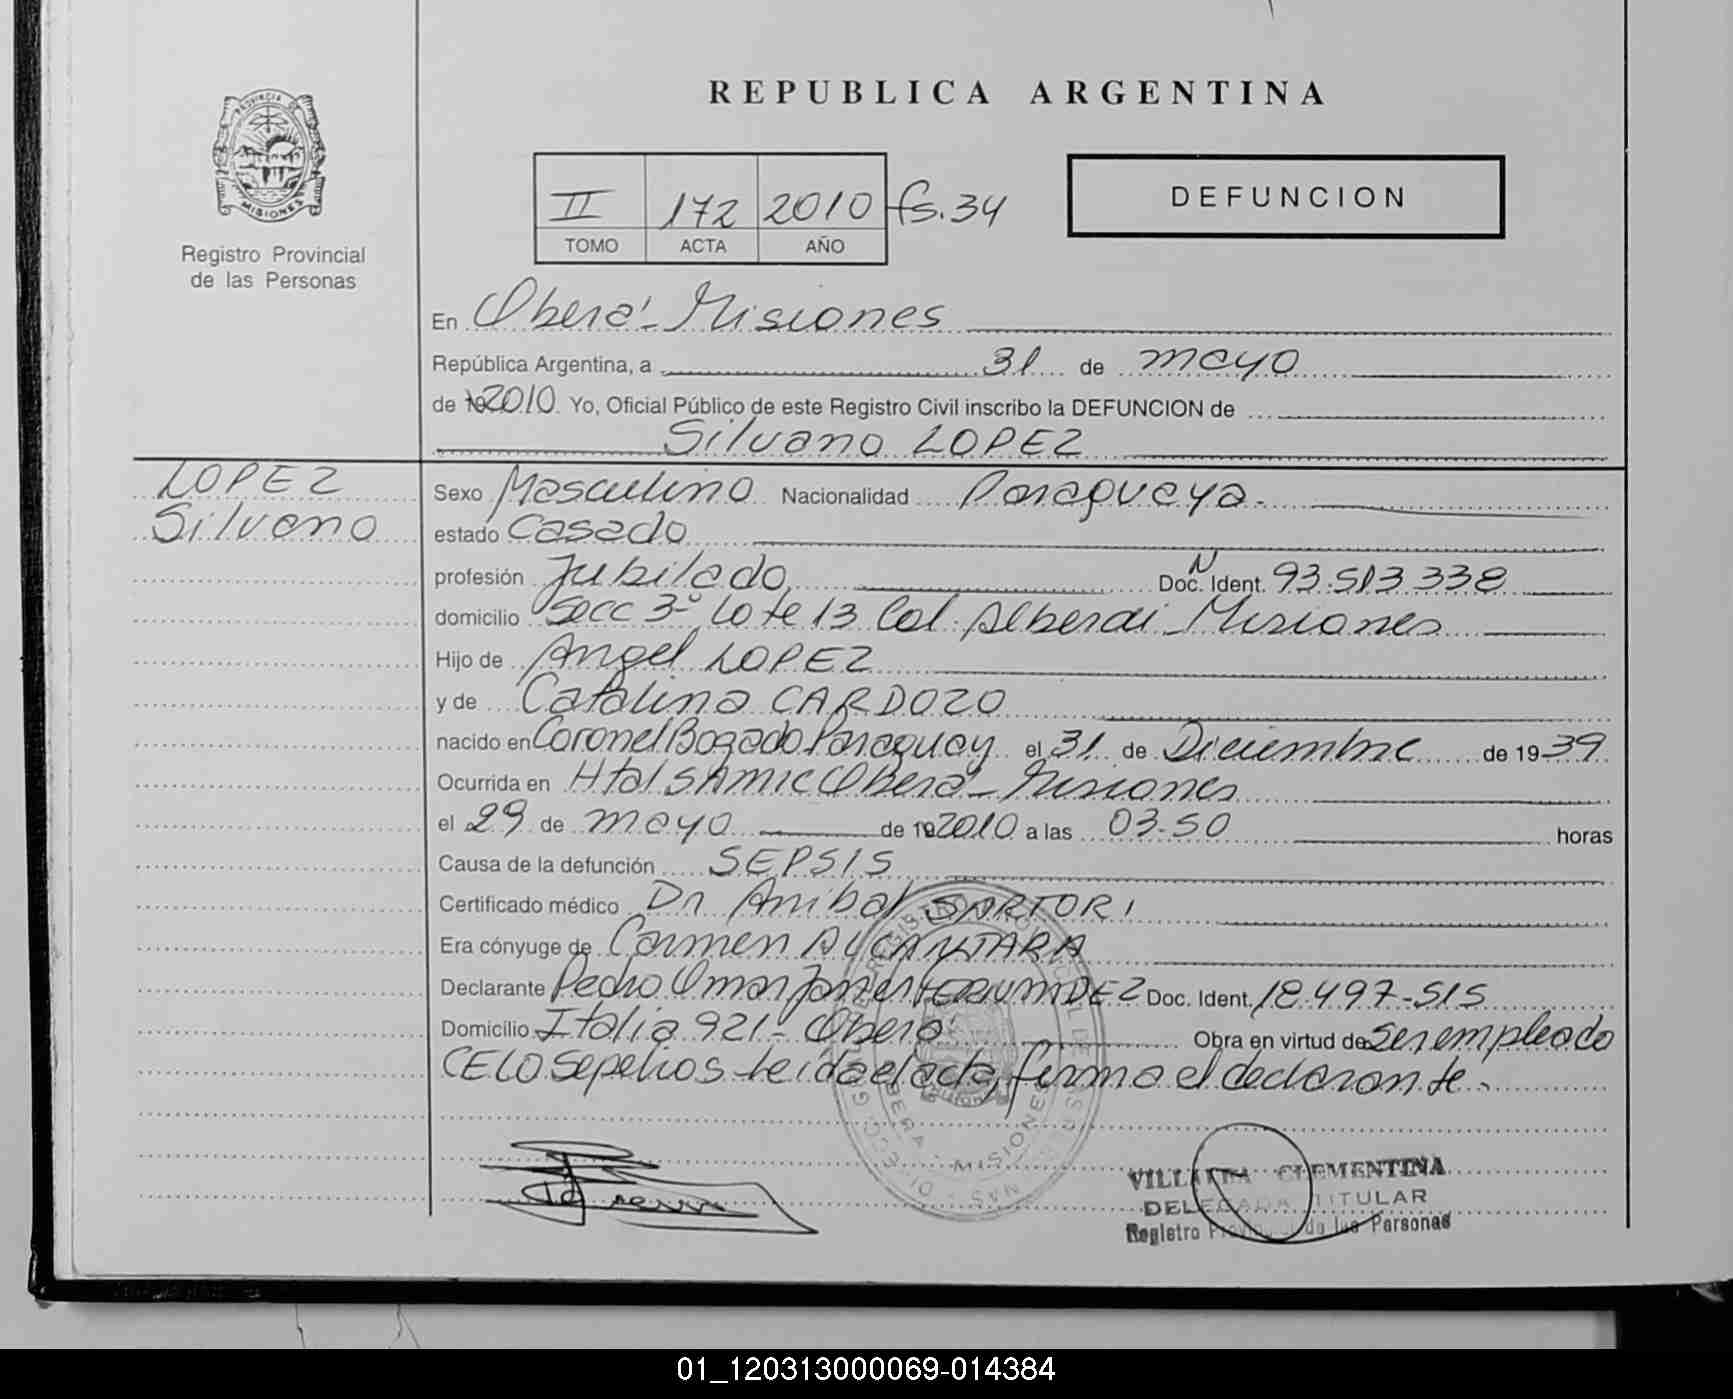 REPUBLICA ARGENTINA
PROVINCIA DE
MISIONES
Registro Provincial
de las Personas
II 172 2010 fs.34
TOMO ACTA AÑO
DEFUNCION
En Oberá - Misiones
República Argentina, a 31 de mayo
de 192010. Yo, Oficial Público de este Registro Civil inscribo la DEFUNCION de
Silvano LOPEZ
LOPEZ
Silvano
Sexo Masculino Nacionalidad Paraguaya.
estado Casado
profesión Jubilado Doc. Ident. N 93.513.338
domicilio Secc 3º Lote 13 Col. Alberdi - Misiones
Hijo de Angel LOPEZ
y de Catalina CARDOZO
nacido en Coronel Bogado Paraguay el 31 de Diciembre de 1939
Ocurrida en Htal SAMIC Oberá - Misiones
el 29 de mayo de 192010 a las 03.50 horas
Causa de la defunción SEPSIS
Certificado médico Dr Anibal SARTORI
Era cónyuge de Carmen ALCANTARA
Declarante Pedro Omar FERNANDEZ Doc. Ident. 18.497-515
Domicilio Italia 921 - Oberá Obra en virtud de ser empleado
CELO Sepelios leída el acta, firma el declarante.
OBERA - MISIONES
VILLALBA CLEMENTINA
DELEGADA TITULAR
Registro Provincial de las Personas
01_120313000069-014384